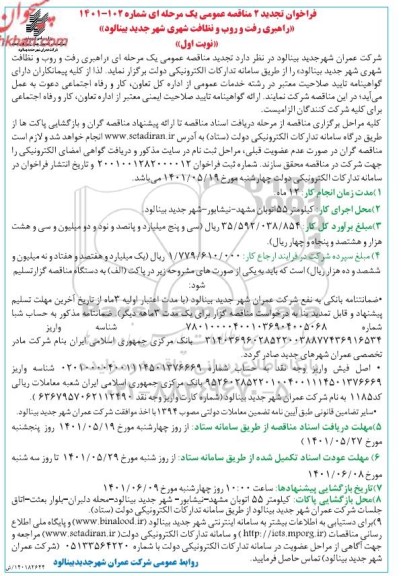 فراخوان تجدید ۲ مناقصه عمومی یک مرحله ای شماره ۱۰۲-۱۴۰۱
«راهبری رفت و روب و نظافت شهری شهر جدید بینالود»
«نوبت اول»
شرکت عمران شهرجدید بینالود در نظر دارد تجدید مناقصه عمومی یک مرحله ای «راهبری رفت و روب و نظافت
شهری شهر جدید بینالود» را از طریق سامانه تدارکات الکترونیکی دولت برگزار نماید. لذا از کلیه پیمانکاران دارای
گواهینامه تایید صلاحیت معتبر در رشته خدمات عمومی از اداره کل تعاون، کار و رفاه اجتماعی دعوت به عمل
می‌آید؛ در این مناقصه شرکت نمایند. ارائه گواهینامه تایید صلاحیت ایمنی معتبر از اداره تعاون، کار و رفاه اجتماعی
برای کلیه شرکت کنندگان الزامیست.
کلیه مراحل برگزاری مناقصه از مرحله دریافت اسناد مناقصه تا ارائه پیشنهاد مناقصه گران و بازگشایی پاکت ها از
طریق درگاه سامانه تدارکات الکترونیکی دولت (ستاد) به آدرس www.setadiran.ir انجام خواهد شد و لازم است
مناقصه گران در صورت عدم عضویت قبلی، مراحل ثبت نام در سایت مذکور و دریافت گواهی امضای الکترونیکی را
جهت شرکت در مناقصه محقق سازند. شماره ثبت فراخوان ۲۰۰۱۰۰۱۲۸۲۰۰۰۰۱۲ و تاریخ انتشار فراخوان در
سامانه تدارکات الکترونیکی دولت چهارشنبه مورخ ۱۴۰۱/۰۵/۱۹ می‌باشد.
۱)مدت زمان انجام کار: ۱۲ ماه.
۲)محل اجرای کار: کیلومتر ۵۵ اتوبان مشهد-نیشابور-شهر جدید بینالود.
۳)مبلغ برآورد کل کار: ۳۵/۵۹۲/۰۳۸/۸۵۴ ریال (سی و پنج میلیارد و پانصد و نود و دو میلیون و سی و هشت
هزار و هشتصد و پنجاه و چهار ریال).
۴) مبلغ سپرده شرکت در فرایند ارجاع کار: ۱/۷۷۹/۶۱۰/۰۰۰ ریال (یک میلیارد و هفتصد و هفتاد و نه میلیون و
ششصد و ده هزار ریال) است که باید به یکی از صورت های مشروحه زیر در پاکت (الف) به دستگاه مناقصه گزار تسلیم
شود:
•ضمانتنامه بانکی به نفع شرکت عمران شهر جدید بینالود (با مدت اعتبار اولیه ۳ماه از تاریخ آخرین مهلت تسلیم
پیشنهاد و قابل تمدید بنا به درخواست مناقصه گزار برای یک مدت ۳ماهه دیگر). ضمانتنامه مذکور به حساب شبا
شماره شناسه واریز
بانک مرکزی جمهوری اسلامی ایران بنام شرکت مادر
تخصصی عمران شهرهای جدید صادر گردد.
• اصل فیش واریز وجه نقد به حساب شماره شناسه واریز
بانک مرکزی جمهوری اسلامی ایران شعبه معاملات ریالی
کد۱۱۸۵ به نام شرکت عمران شهر جدید بینالود (شماره کارت واریز وجه نقد ).
•سایر تضامین قانونی طبق آیین نامه تضمین معاملات دولتی مصوب ۱۳۹۴ با اخذ موافقت شرکت عمران شهر جدید بینالود.
۵)مهلت دریافت اسناد مناقصه از طریق سامانه ستاد: از روز چهارشنبه مورخ ۱۴۰۱/۰۵/۱۹ روز پنجشنبه
مورخ ۱۴۰۱/۰۵/۲۷)
۶) مهلت عودت اسناد تکمیل شده از طریق سامانه ستاد: از روز شنبه مورخ ۱۴۰۱/۰۵/۲۹ تا روز سه شنبه
مورخ ۱۴۰۱/۰۶/۰۸
۷)تاریخ بازگشایی پیشنهادها: ساعت ۱۰:۰۰ روز چهارشنبه مورخ ۱۴۰۱/۰۶/۰۹
۸)محل بازگشایی پاکات: کیلومتر ۵۵ اتوبان مشهد-نیشابور- شهر جدید بینالود-محله دلبران-بلوار بعثت-اتاق
جلسات شرکت عمران شهر جدید بینالود از طریق سامانه تدارکات الکترونیکی دولت (ستاد).
۹)برای دستیابی به اطلاعات بیشتر به سامانه اینترنتی شهر جدید بینالود (www.binalood.ir) و پایگاه ملی اطلاع
رسانی مناقصات (http://iets.mporg.ir) و سامانه تدارکات الکترونیکی دولت (www.setadiran.ir) مراجعه و
جهت آگاهی از مراحل عضویت در سامانه تدارکات الکترونیکی دولت با شماره ۰۵۱۳۳۵۶۴۲۲۰ (شرکت عمران
شهر جدید بینالود) تماس حاصل فرمایید.
روابط عمومی شرکت عمران شهرجدیدبینالود